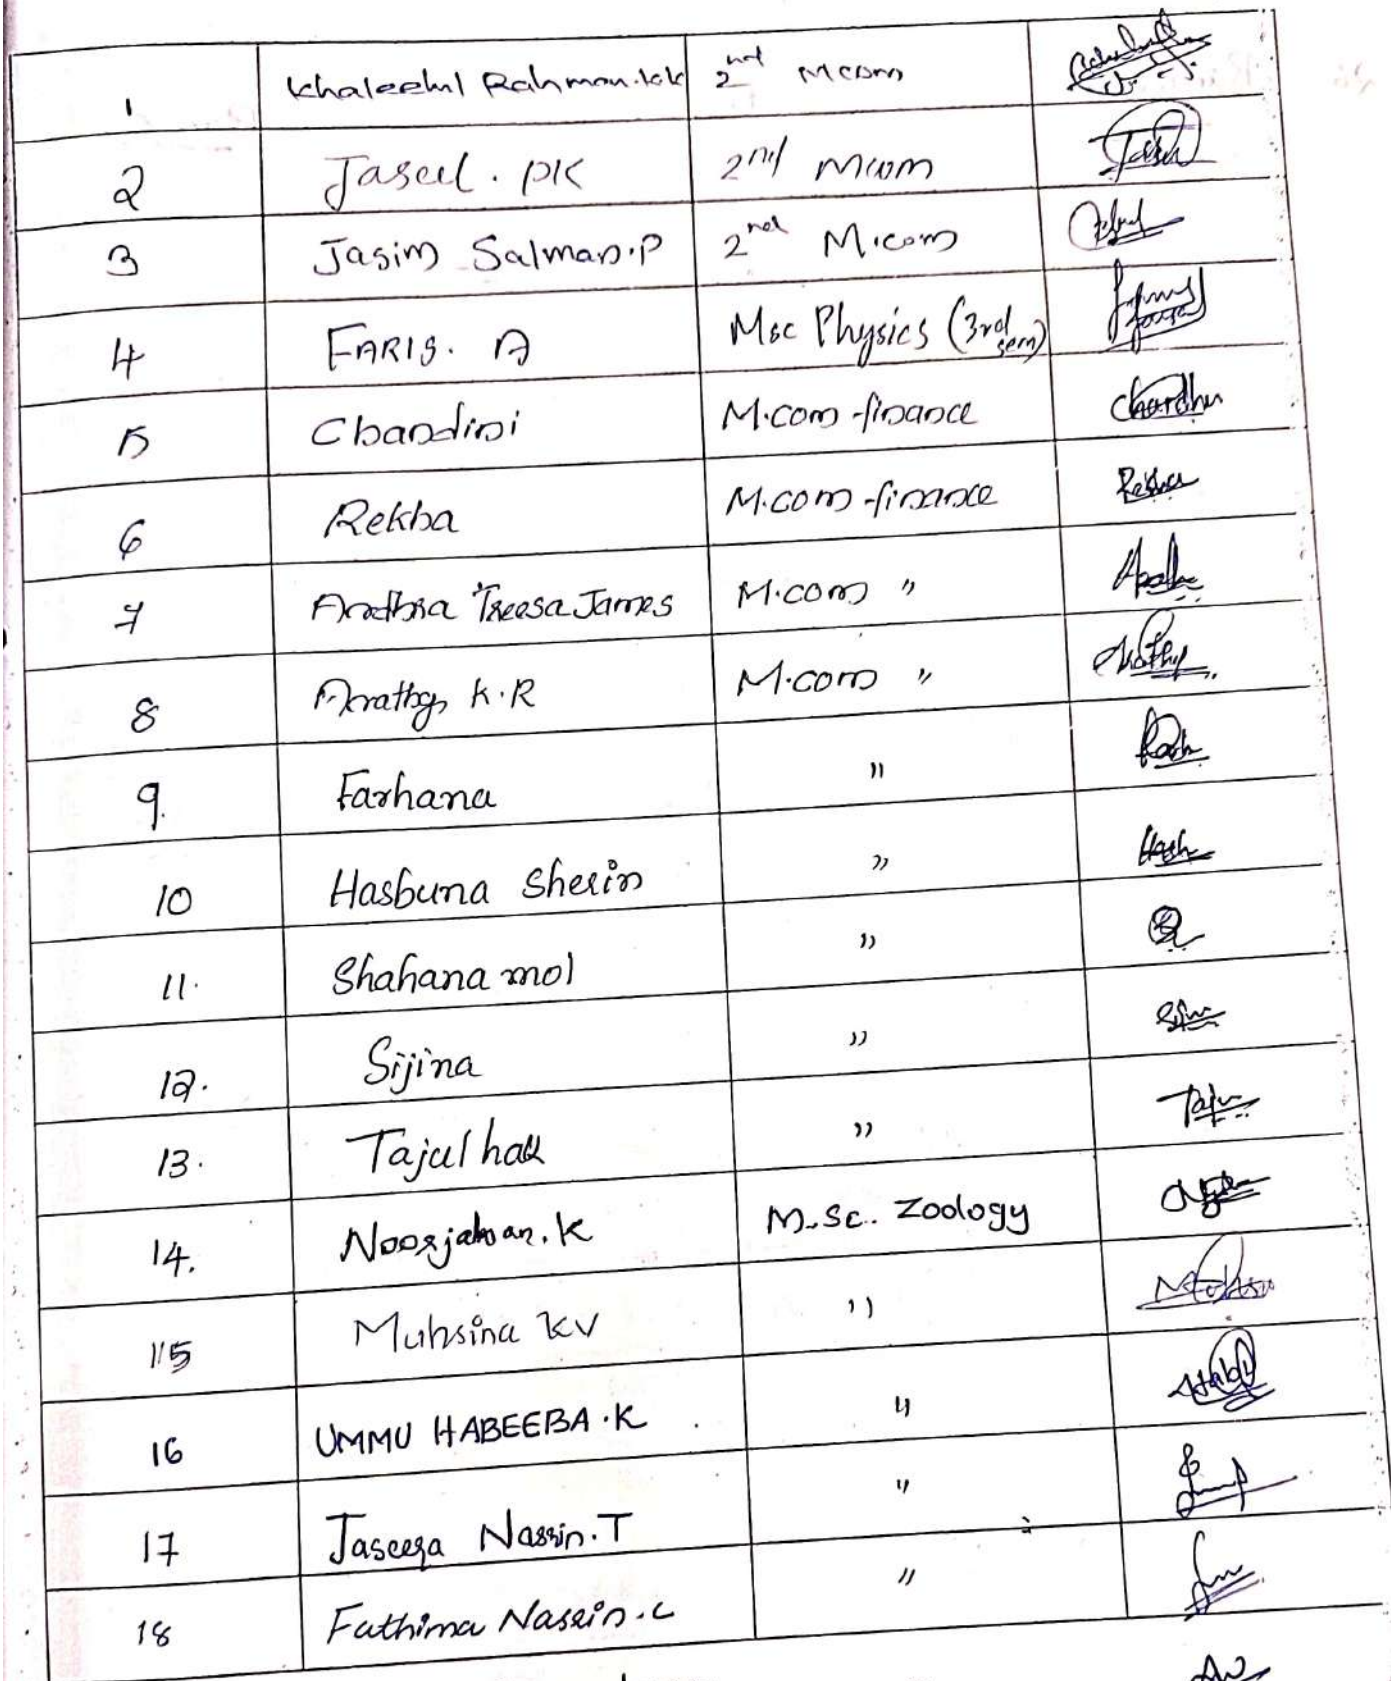 1 Khaleelul Rahman.kk 2nd Mcom
2 Jaseel. PK 2nd Mcom
3 Jasim Salman.P 2nd M.com
4 FARIS. A Msc Physics (3rd sem)
5 Chandini M.com-finance Chandhu
6 Rekha M.com-finance Rekha
7 Andhra Treesa James M.com "
8 Arathy K.R M.com " Arathy
9. Farhana "
10 Hasbuna Sherin " Hash
11. Shahana mol "
12. Sijina "
13. Tajul hak " Taju
14. Noorjahan.K M.Sc. Zoology
15 Muhsina KV "
16 UMMU HABEEBA.K "
17 Jaseera Nassin.T "
18 Fathima Nassin.C "